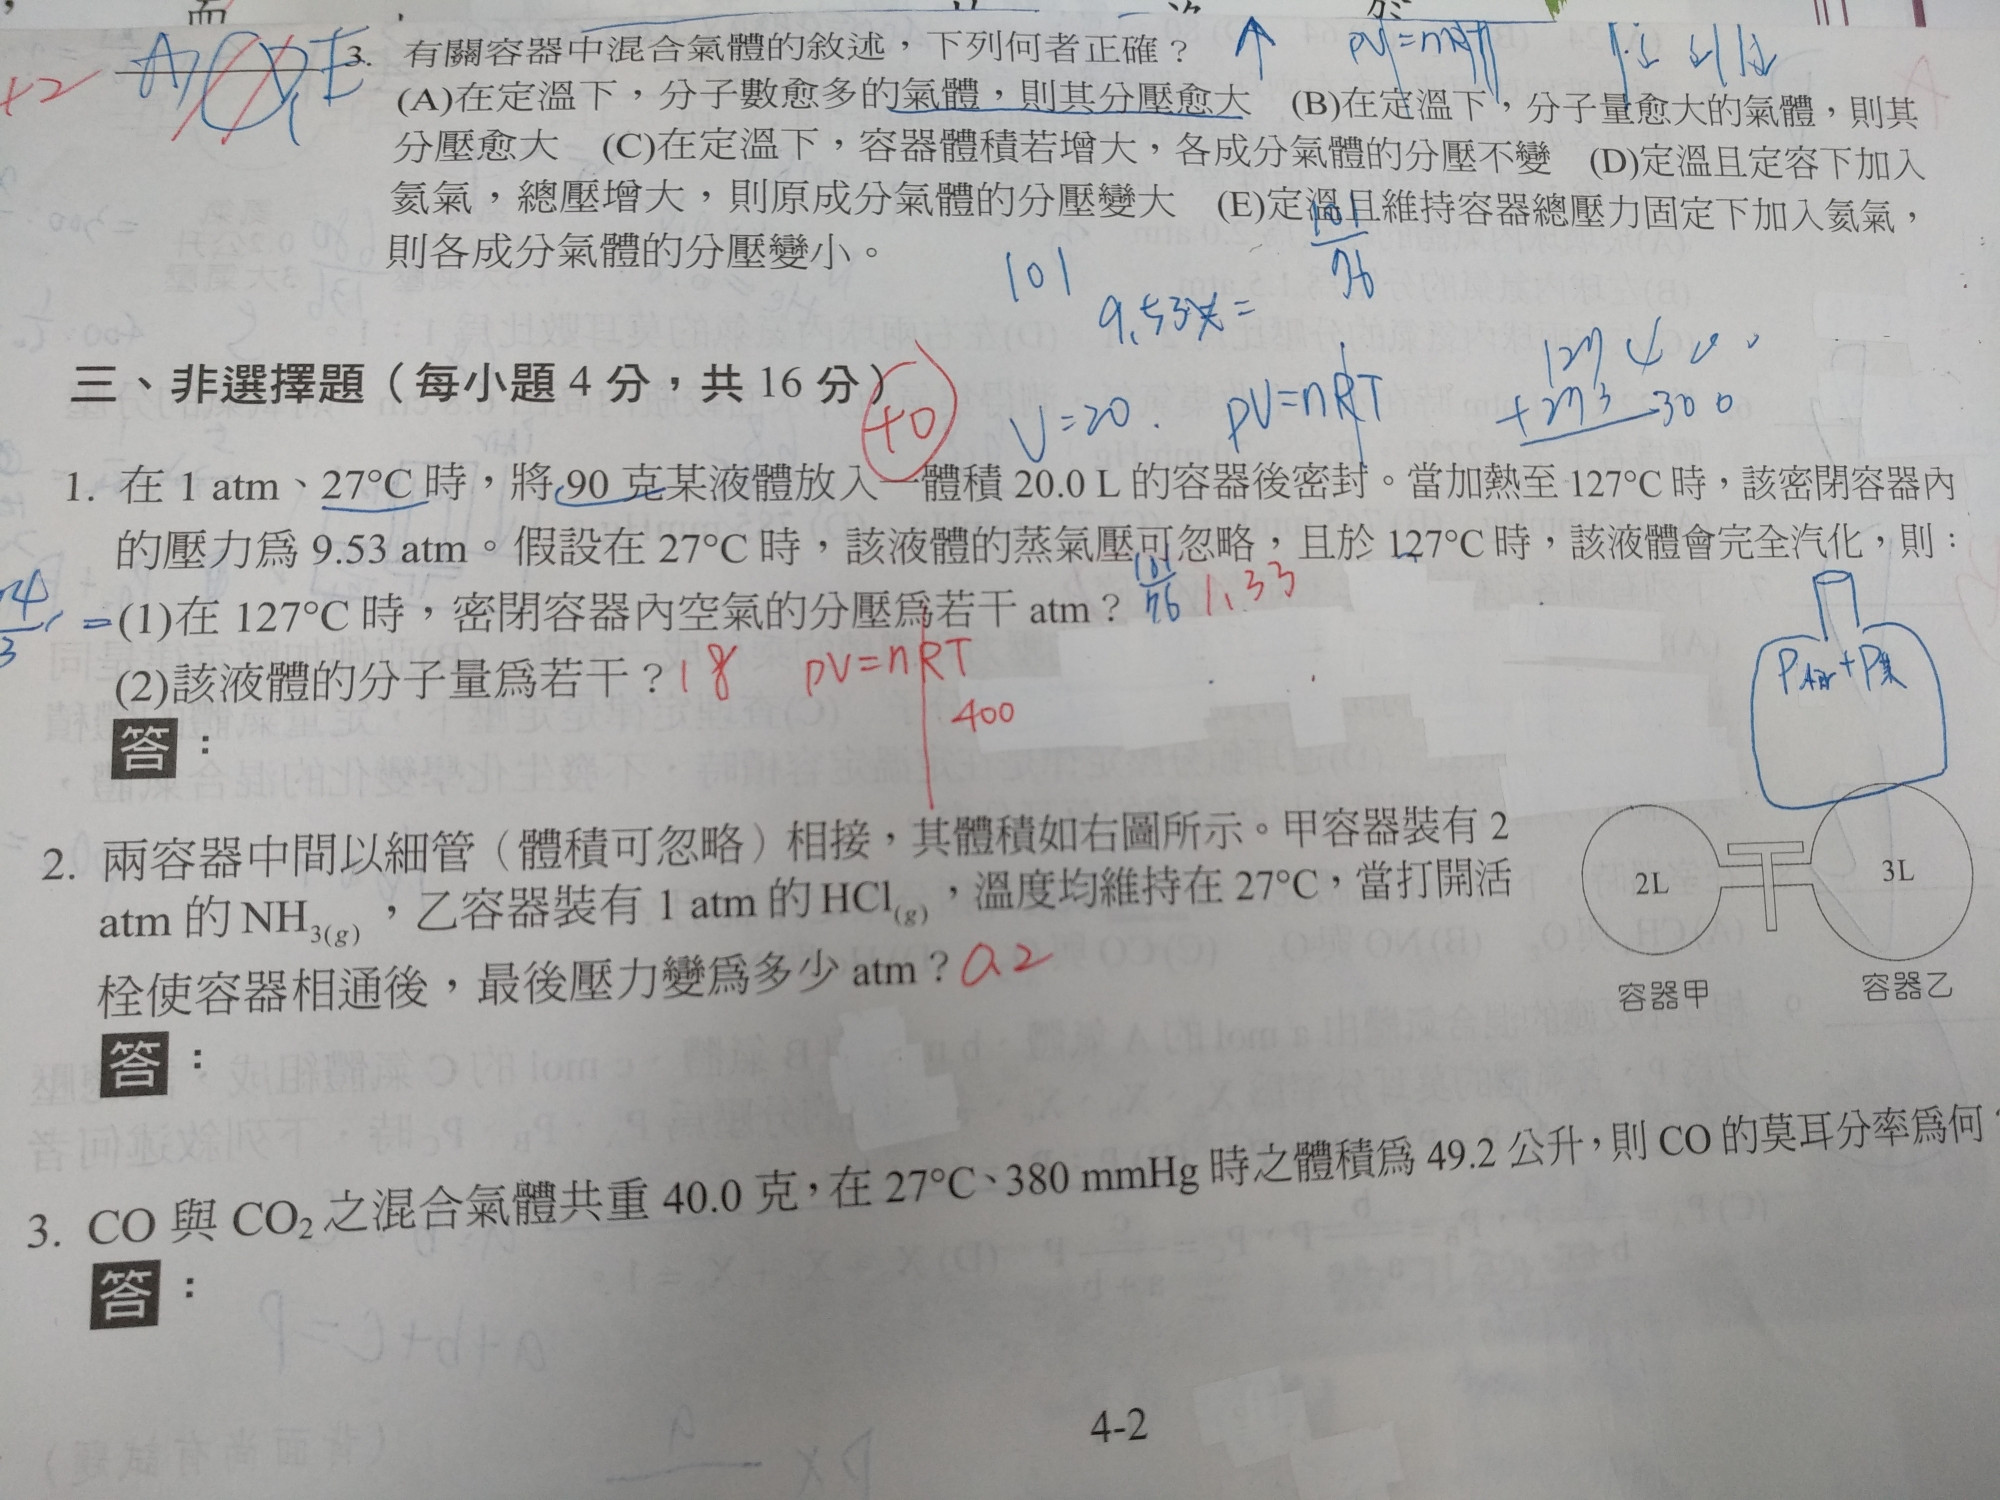 3. 有關容器中混合氣體的敘述，下列何者正確？ ↑ PV=nRT
+2
(A)在定溫下，分子數愈多的氣體，則其分壓愈大 (B)在定溫下，分子量愈大的氣體，則其
分壓愈大 (C)在定溫下，容器體積若增大，各成分氣體的分壓不變 (D)定溫且定容下加入
氦氣，總壓增大，則原成分氣體的分壓變大 (E)定溫且維持容器總壓力固定下加入氦氣，
則各成分氣體的分壓變小。
101
101
76
9.53
三、非選擇題（每小題 4 分，共 16 分）
+0
V=20. PV=nRT
127 400
+273 300
1. 在 1 atm、27°C 時，將 90 克某液體放入一體積 20.0 L 的容器後密封。當加熱至 127°C 時，該密閉容器內
的壓力為 9.53 atm。假設在 27°C 時，該液體的蒸氣壓可忽略，且於 127°C 時，該液體會完全汽化，則：
(1)在 127°C 時，密閉容器內空氣的分壓為若干 atm？ 101
76 1.33
4
3
(2)該液體的分子量為若干？18 PV=nRT
400
答：
2. 兩容器中間以細管（體積可忽略）相接，其體積如右圖所示。甲容器裝有 2
atm 的 NH3(g)，乙容器裝有 1 atm 的 HCl(g)，溫度均維持在 27°C，當打開活
栓使容器相通後，最後壓力變為多少 atm？0.2
2L 3L
容器甲 容器乙
答：
3. CO 與 CO2 之混合氣體共重 40.0 克，在 27°C、380 mmHg 時之體積為 49.2 公升，則 CO 的莫耳分率為何？
答：
4-2